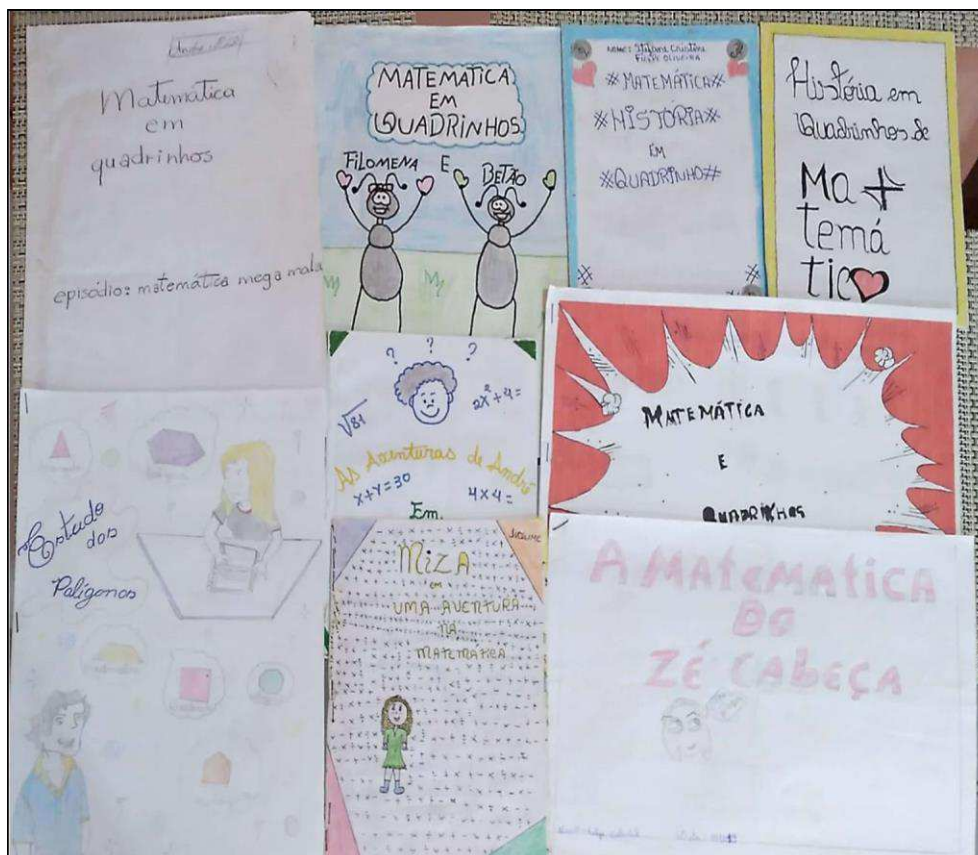 Matemática
em
quadrinhos
episódio: matemática mega mala
MATEMATICA
EM
QUADRINHOS.
FILOMENA E BETÃO
NOME: Stefane Cristina
FILIPE OLIVEIRA
#MATEMÁTICA#
#HISTÓRIA#
EM
#QUADRINHO#
História em
Quadrinhos de
Ma+
temá
tica
? ? ?
√81
2x²+4=
As Aventuras de André
x+y=30
4x4=
Em.
MATEMÁTICA
E
QUADRINHOS
Estudo
dos
Polígonos
MiZA
em
UMA AVENTURA
NA
MATEMÁTICA
A MATEMATICA
DO
ZÉ CABEÇA